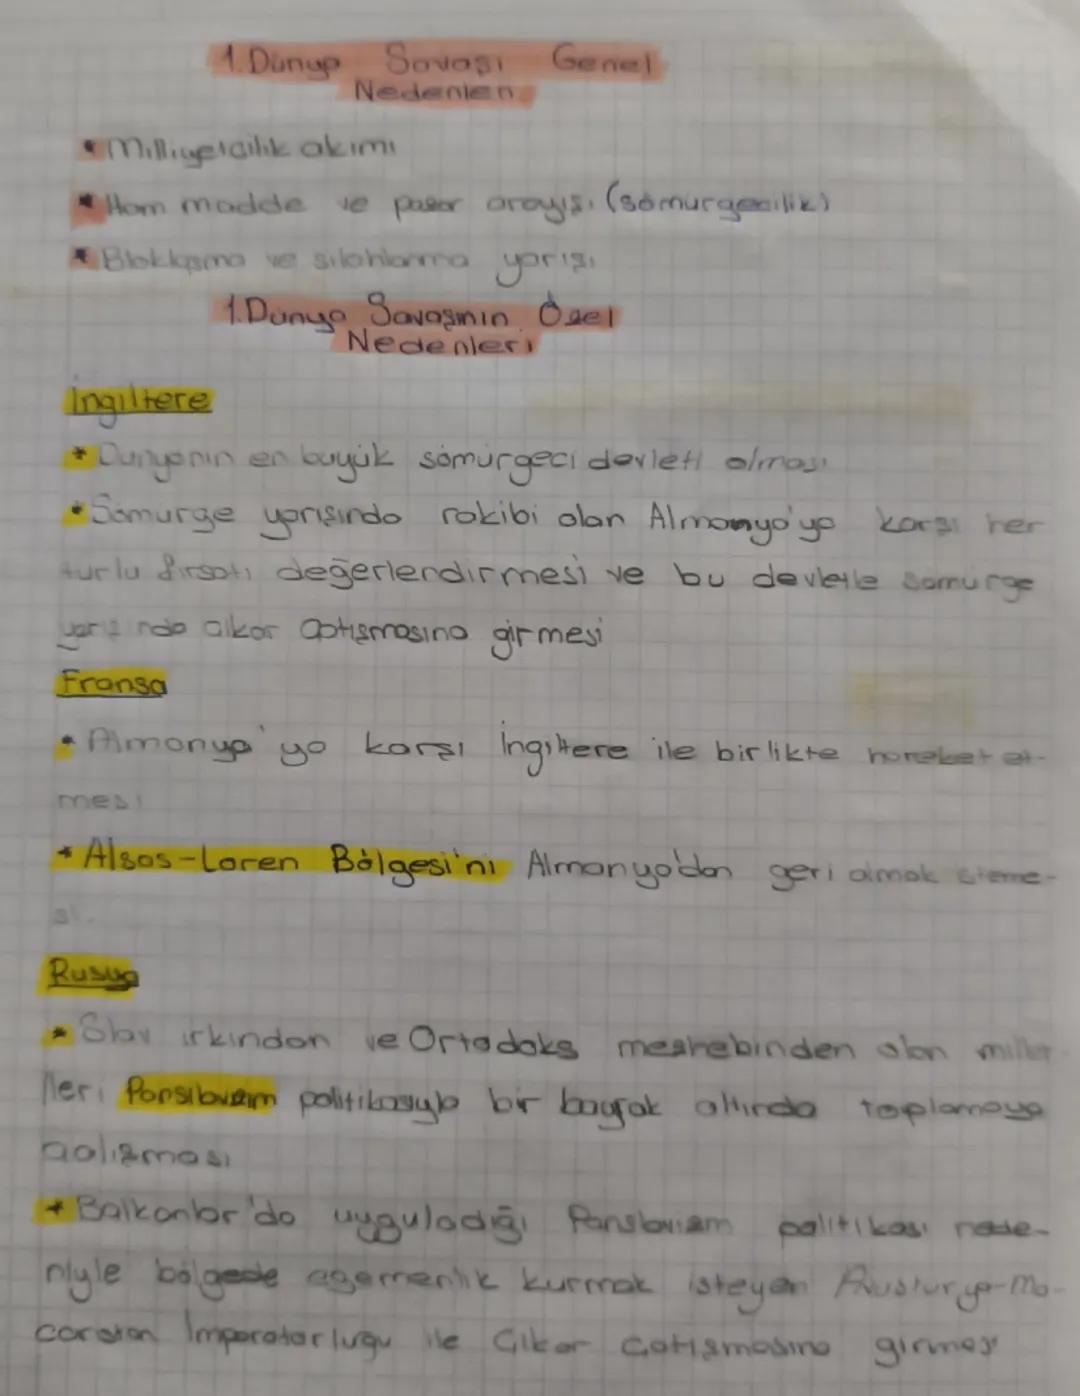 1. Dünya Savaşı Genel
Nedenleri
* Milliyetcilik akımı
* Ham madde ve pazar arayışı (sömürgecilik)
* Bloklaşma ve silahlanma yarışı
1. Dünya Savaşının Özel
Nedenleri
İngiltere
* Dünyanın en büyük sömürgeci devleti olması
* Sömürge yarışında rakibi olan Almanya'ya karşı her
türlü fırsatı değerlendirmesi ve bu devletle sömürge
yarışında çıkar çatışmasına girmesi
Fransa
* Almanya'ya karşı İngiltere ile birlikte hareket et-
mesi
* Alsas-Loren Bölgesi'ni Almanya'dan geri almak isteme-
si.
Rusya
* Slav ırkından ve Ortadoks meshebinden olan millet
lleri Panslavizm politikasıyla bir bayrak altında toplamaya
çalışması
* Balkanlar'da uyguladığı Panslavizm politikası nede-
niyle bölgede egemenlik kurmak isteyen Avusturya-Ma-
caristan İmparatorluğu ile Çıkar Çatışmasına girmesi